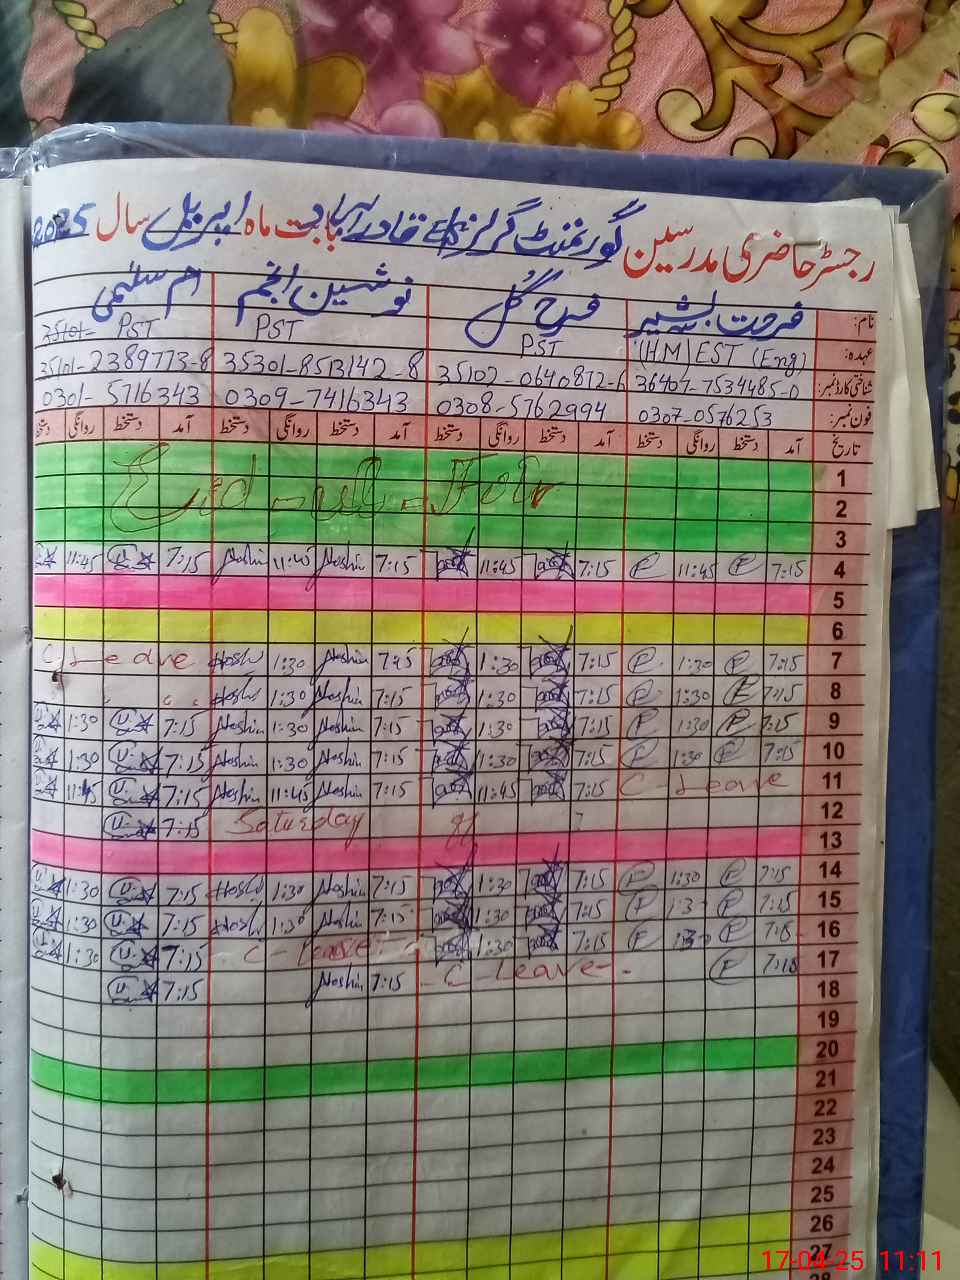 رجسٹر حاضری مدرسین گورنمنٹ گرلز E/S قادر آباد بابت ماہ اپریل سال 2025
نام: فرحت بشیر فرح گل نوشین انجم ام سلمیٰ
عہدہ: (H.M) EST (Eng) PST PST PST
شناختی کارڈ نمبر: 36407-7534485-0 35102-0640872-6 35301-8513142-8 35101-2389773-8
فون نمبر: 0307-0576253 0308-5762994 0309-7416343 0301-5716343
تاریخ آمد دستخط روانگی دستخط آمد دستخط روانگی دستخط آمد دستخط روانگی دستخط آمد دستخط روانگی دستخط
1
2 Eid-ul-Fitr
3
4 7:15 11:45 7:15 11:45 7:15 Noshin 11:45 Noshin 7:15 11:45
5
6
7 7:15 1:30 7:15 1:30 7:15 Noshin 1:30 C. Leave
8 7:15 1:30 7:15 1:30 7:15 Noshin 1:30
9 7:15 1:30 7:15 1:30 7:15 Noshin 1:30 Noshin 7:15 1:30
10 7:15 1:30 7:15 1:30 7:15 Noshin 1:30 Noshin 7:15 1:30
11 C-Leave 7:15 11:45 7:15 Noshin 11:45 Noshin 7:15 11:45
12 Saturday 7:15
13
14 7:15 1:30 7:15 1:30 7:15 Noshin 1:30 7:15 1:30
15 7:15 1:30 7:15 1:30 7:15 Noshin 1:30 7:15 1:30
16 7:15 1:30 7:15 1:30 C-Leave 7:15 1:30
17 7:15 C-Leave 7:15 Noshin 7:15
18
19
20
21
22
23
24
25
26
27
28
17-04-25 11:11